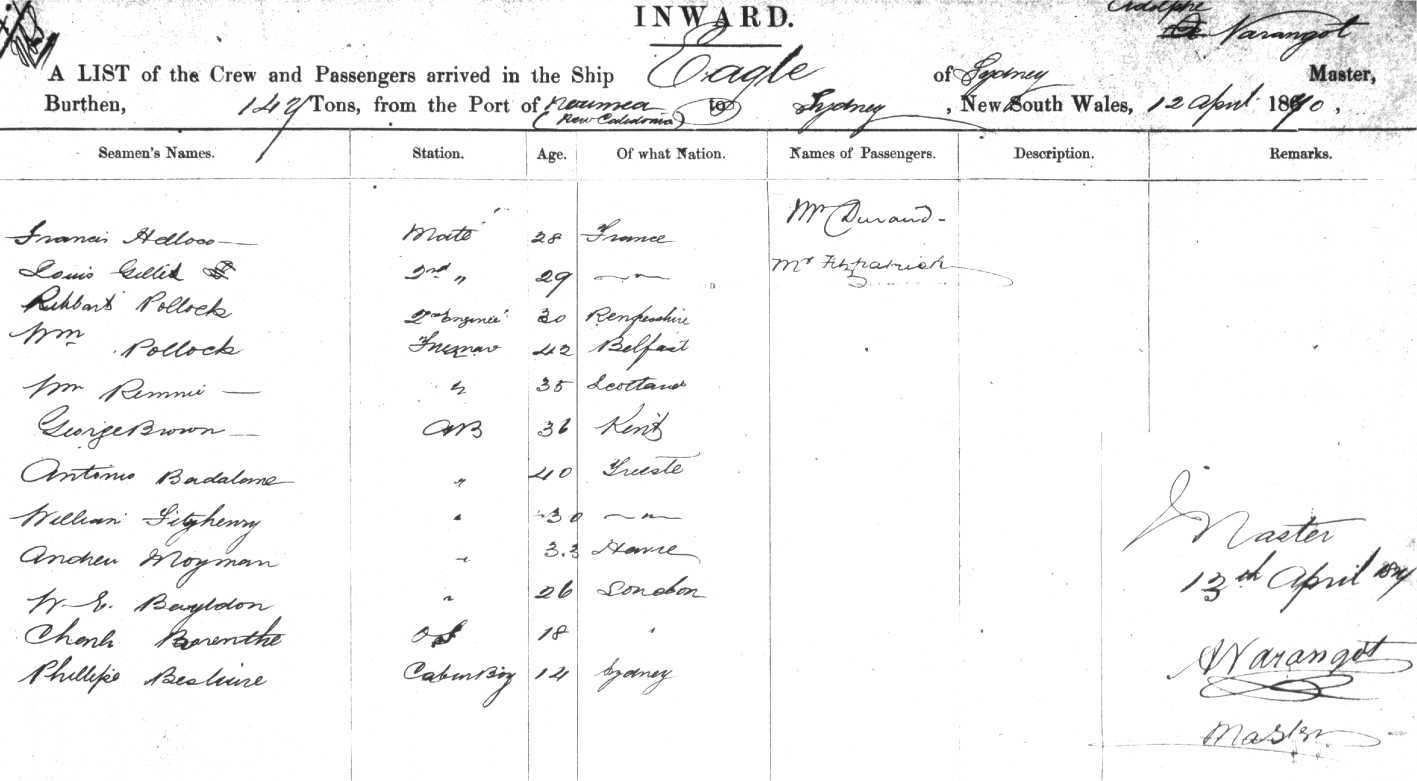 INWARD.
Adolphe
Varangot
A LIST of the Crew and Passengers arrived in the Ship Eagle of Sydney Master,
Burthen, 147 Tons, from the Port of Noumea to Sydney, New South Wales, 12 April 1870,
(New Caledonia)
Seamen's Names. Station. Age. Of what Nation. Names of Passengers. Description. Remarks.
Mr Durand -
Francis Helloco — Mate 28 France
Louis 2nd " 29 — " — Mr Fitzpatrick
Pollock 2nd Engineer 30 Renfrewshire
Wm Pollock Fireman 42 Belfast
Wm Rennie — " 35 Scotland
George Brown — AB 36 Kent
Antonio Badalome " 40 Trieste
William Fitzhenry " 30 — " —
Andrew Moyman " 33 Havre
W. E. Bayldon " 26 London
Barenthe OS 18 "
Phillipe Cabin Boy 14 Sydney
Master
13th April
A Varangot
Master